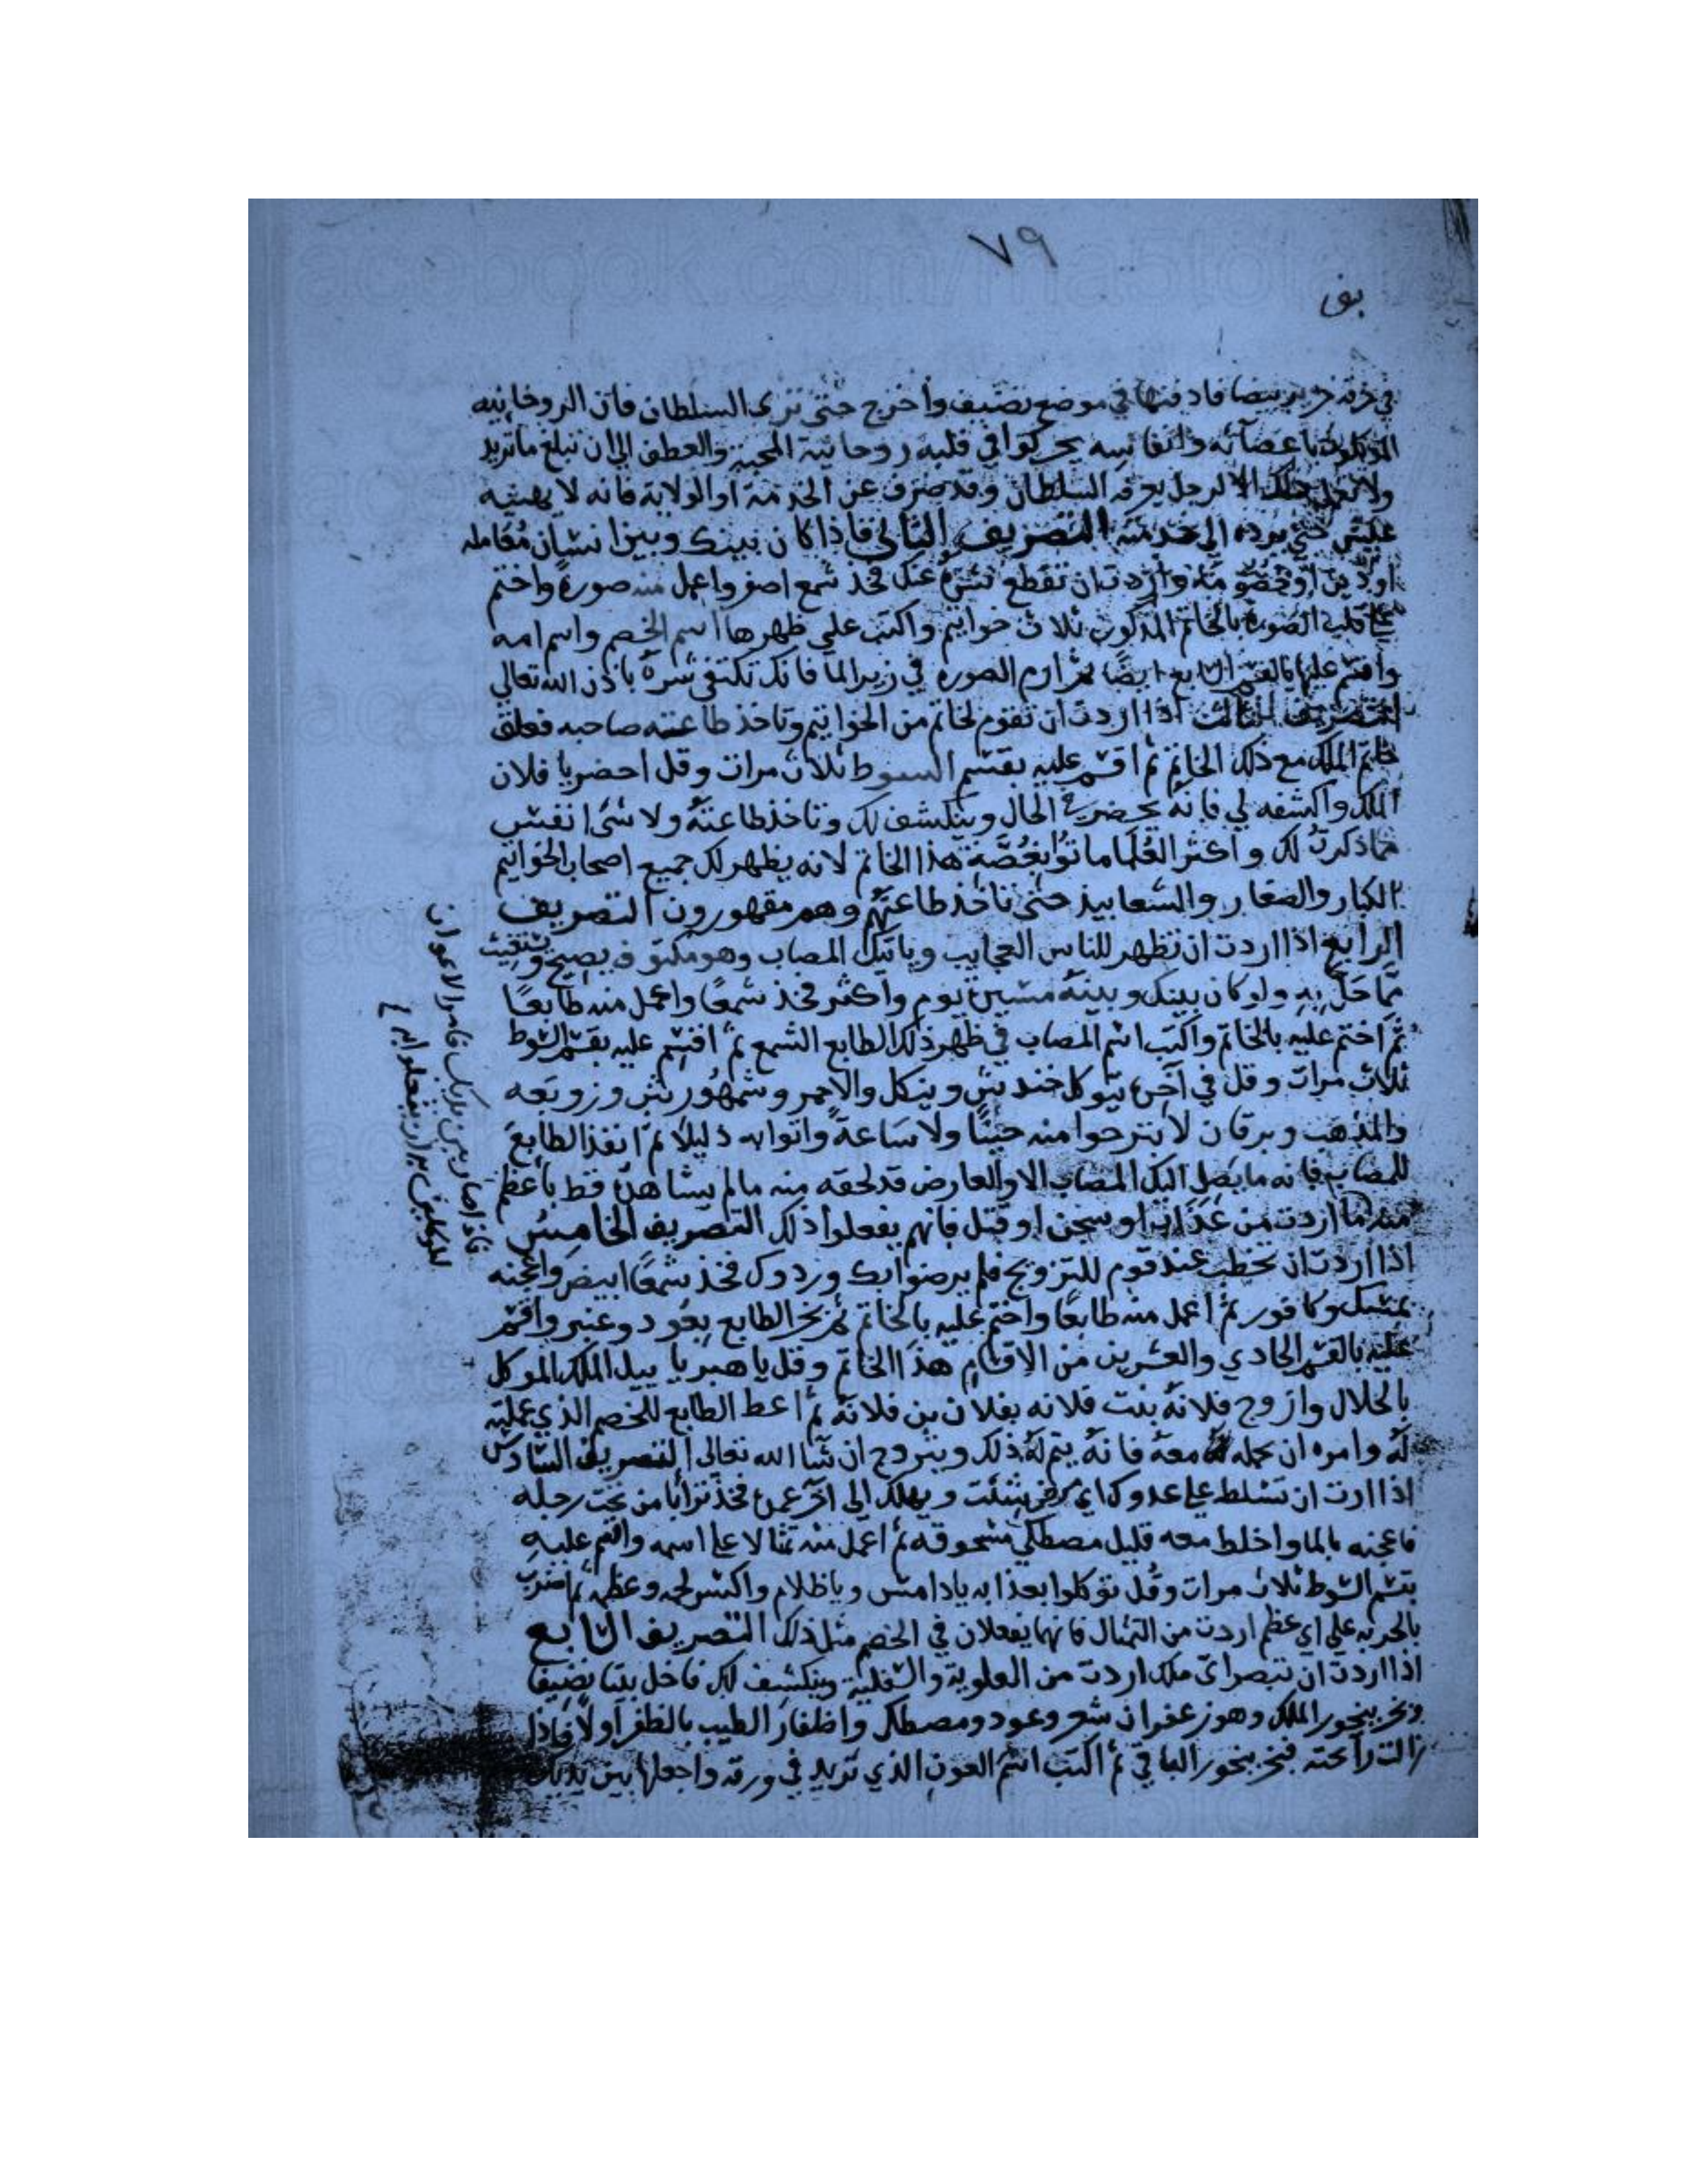 ٧٩
في خرقة حرير بيضا فادفنها في موضع نضيف واخرج حتى ترى السلطان فان الروحانيه
باعضائه وانفاسه يحركوا في قلبه روحانية المحبة والعطف الى ان تبلغ ماتريد
ولا تعمل ذلك الا لرجل يعرفه السلطان وقد صرف عن الخدمة او الولاية فانه لا يهنيه
حتى يرده الى خدمته التصريف الثاني فاذا كان بينك وبين انسان مقامله
او دين او خصومه واردت ان تقطع شره عنك فخذ شمع اصفر واعمل منه صورة واختم
على قلب الصورة بالخاتم المذكور ثلاث خواتيم واكتب علي ظهرها اسم الخصم واسم امه
واقسم عليها بالقسم ايضا ثم ارم الصوره في زير الما فانك تكتفى شره باذن الله تعالي
التصريف الثالث اذا اردت ان تقوم لخاتم من الخواتيم وتاخذ طاعته صاحبه فعلق
خاتم الملك مع ذلك الخاتم ثم اقسم عليه بقسم السوط ثلاث مرات وقل احضر يا فلان
الملك واكشفه لي فانه يحضر في الحال وينكشف لك وتاخذ طاعته ولا شئ انفس
مماذكرت لك واكثر العلما ماتوا بغصة هذا الخاتم لانه يظهر لك جميع اصحاب الخواتيم
الكبار والصغار والشعابيذ حتى تاخذ طاعتهم وهم مقهورون التصريف
الرابع اذا اردت ان تظهر للناس العجايب وياتيك المصاب وهو مكتوف يصيح ويستغيث
مما حل به ولو كان بينك وبينه مسيرة يوم واكثر فخذ شمعا واعمل منه طابعا
ثم اختم عليه بالخاتم واكتب اسم المصاب في ظهر ذلك الطابع الشمع ثم اقسم عليه بقسم السوط
ثلاث مرات وقل في آخره تيوكل خندش وينكل والاحمر وشمهورش وزوبعه
والمذهب وبرقان لا يبرحوا منه حينا ولا ساعة واتوا به ذليلا ثم انفذ الطابع
للمصاب فانه مايصل اليك المصاب الا والعارض قد لحقه منه مالم يشاهده قط باعظم
منه ما اردت من عذاب او سجن او قتل فانهم يفعلوا ذلك التصريف الخامس
اذا اردت ان تخطب عند قوم للتزويج فلم يرضوا بك وردوك فخذ شمعا ابيض واعجنه
بمسك وكافور ثم اعمل منه طابعا واختم عليه بالخاتم ثم بخر الطابع بعود وعنبر واقسم
عليه بالقسم الحادي والعشرين من الاقسام هذا الخاتم وقل يا هبر يا بيل الملك الموكل
بالحلال وازوج فلانة بنت فلانه بفلان بن فلانة ثم اعط الطابع للخصم الذي عملته
له وامره ان يحمله معه فانه يتم له ذلك ويتزوج ان شا الله تعالى التصريف السادس
اذا اردت ان تسلط على عدوك اي مرض شئت ويهلك الى آخر عمره فخذ ترابا من تحت رجله
فاعجنه بالما واخلط معه قليل مصطكي مسحوقه ثم اعمل منه تمثالا على اسمه واقسم عليه
بقسم السوط ثلاث مرات وقل توكلوا بعذابه يا دامس ويا ظلام واكسر لحمه وعظمه ثم اضرب
بالحربه علي اي عظم اردت من التمثال فانهما يفعلان في الخصم مثل ذلك التصريف السابع
اذا اردت ان تبصر اي ملك اردت من العلوية والسفلية وينكشف لك فاخل بيتا نضيفا
وبخر ببخور الملك وهو زعفران شعر وعود ومصطكى واظفار الطيب بالظفر اولا فاذا
زالت رائحته فبخر ببخور الباقي ثم اكتب اسم العون الذي تريد في ورقه واجعلها بين يديك
فاذا صار بين يديك فامر الاعوان